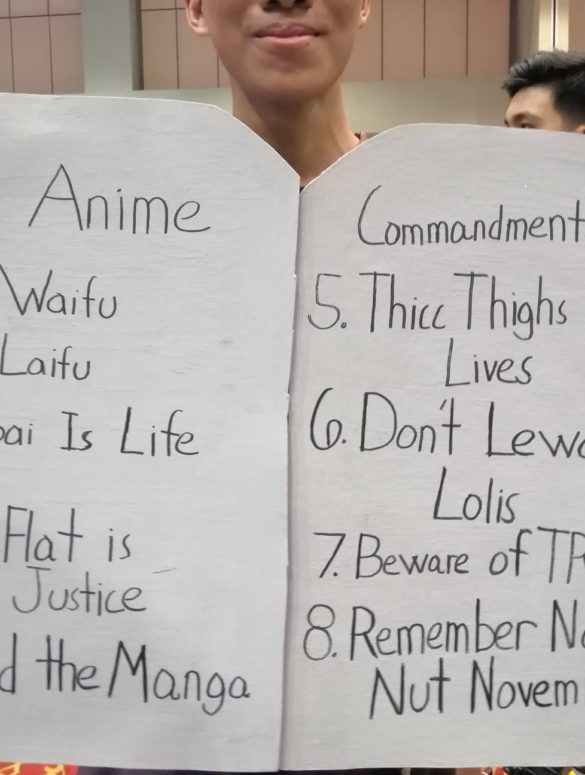 Anime
Waifu
Laifu
Is Life
Flat is
Justice
the Manga
Commandment
5. Thicc Thighs
Lives
6. Don't
Lolis
7. Beware of
8. Remember
Nut